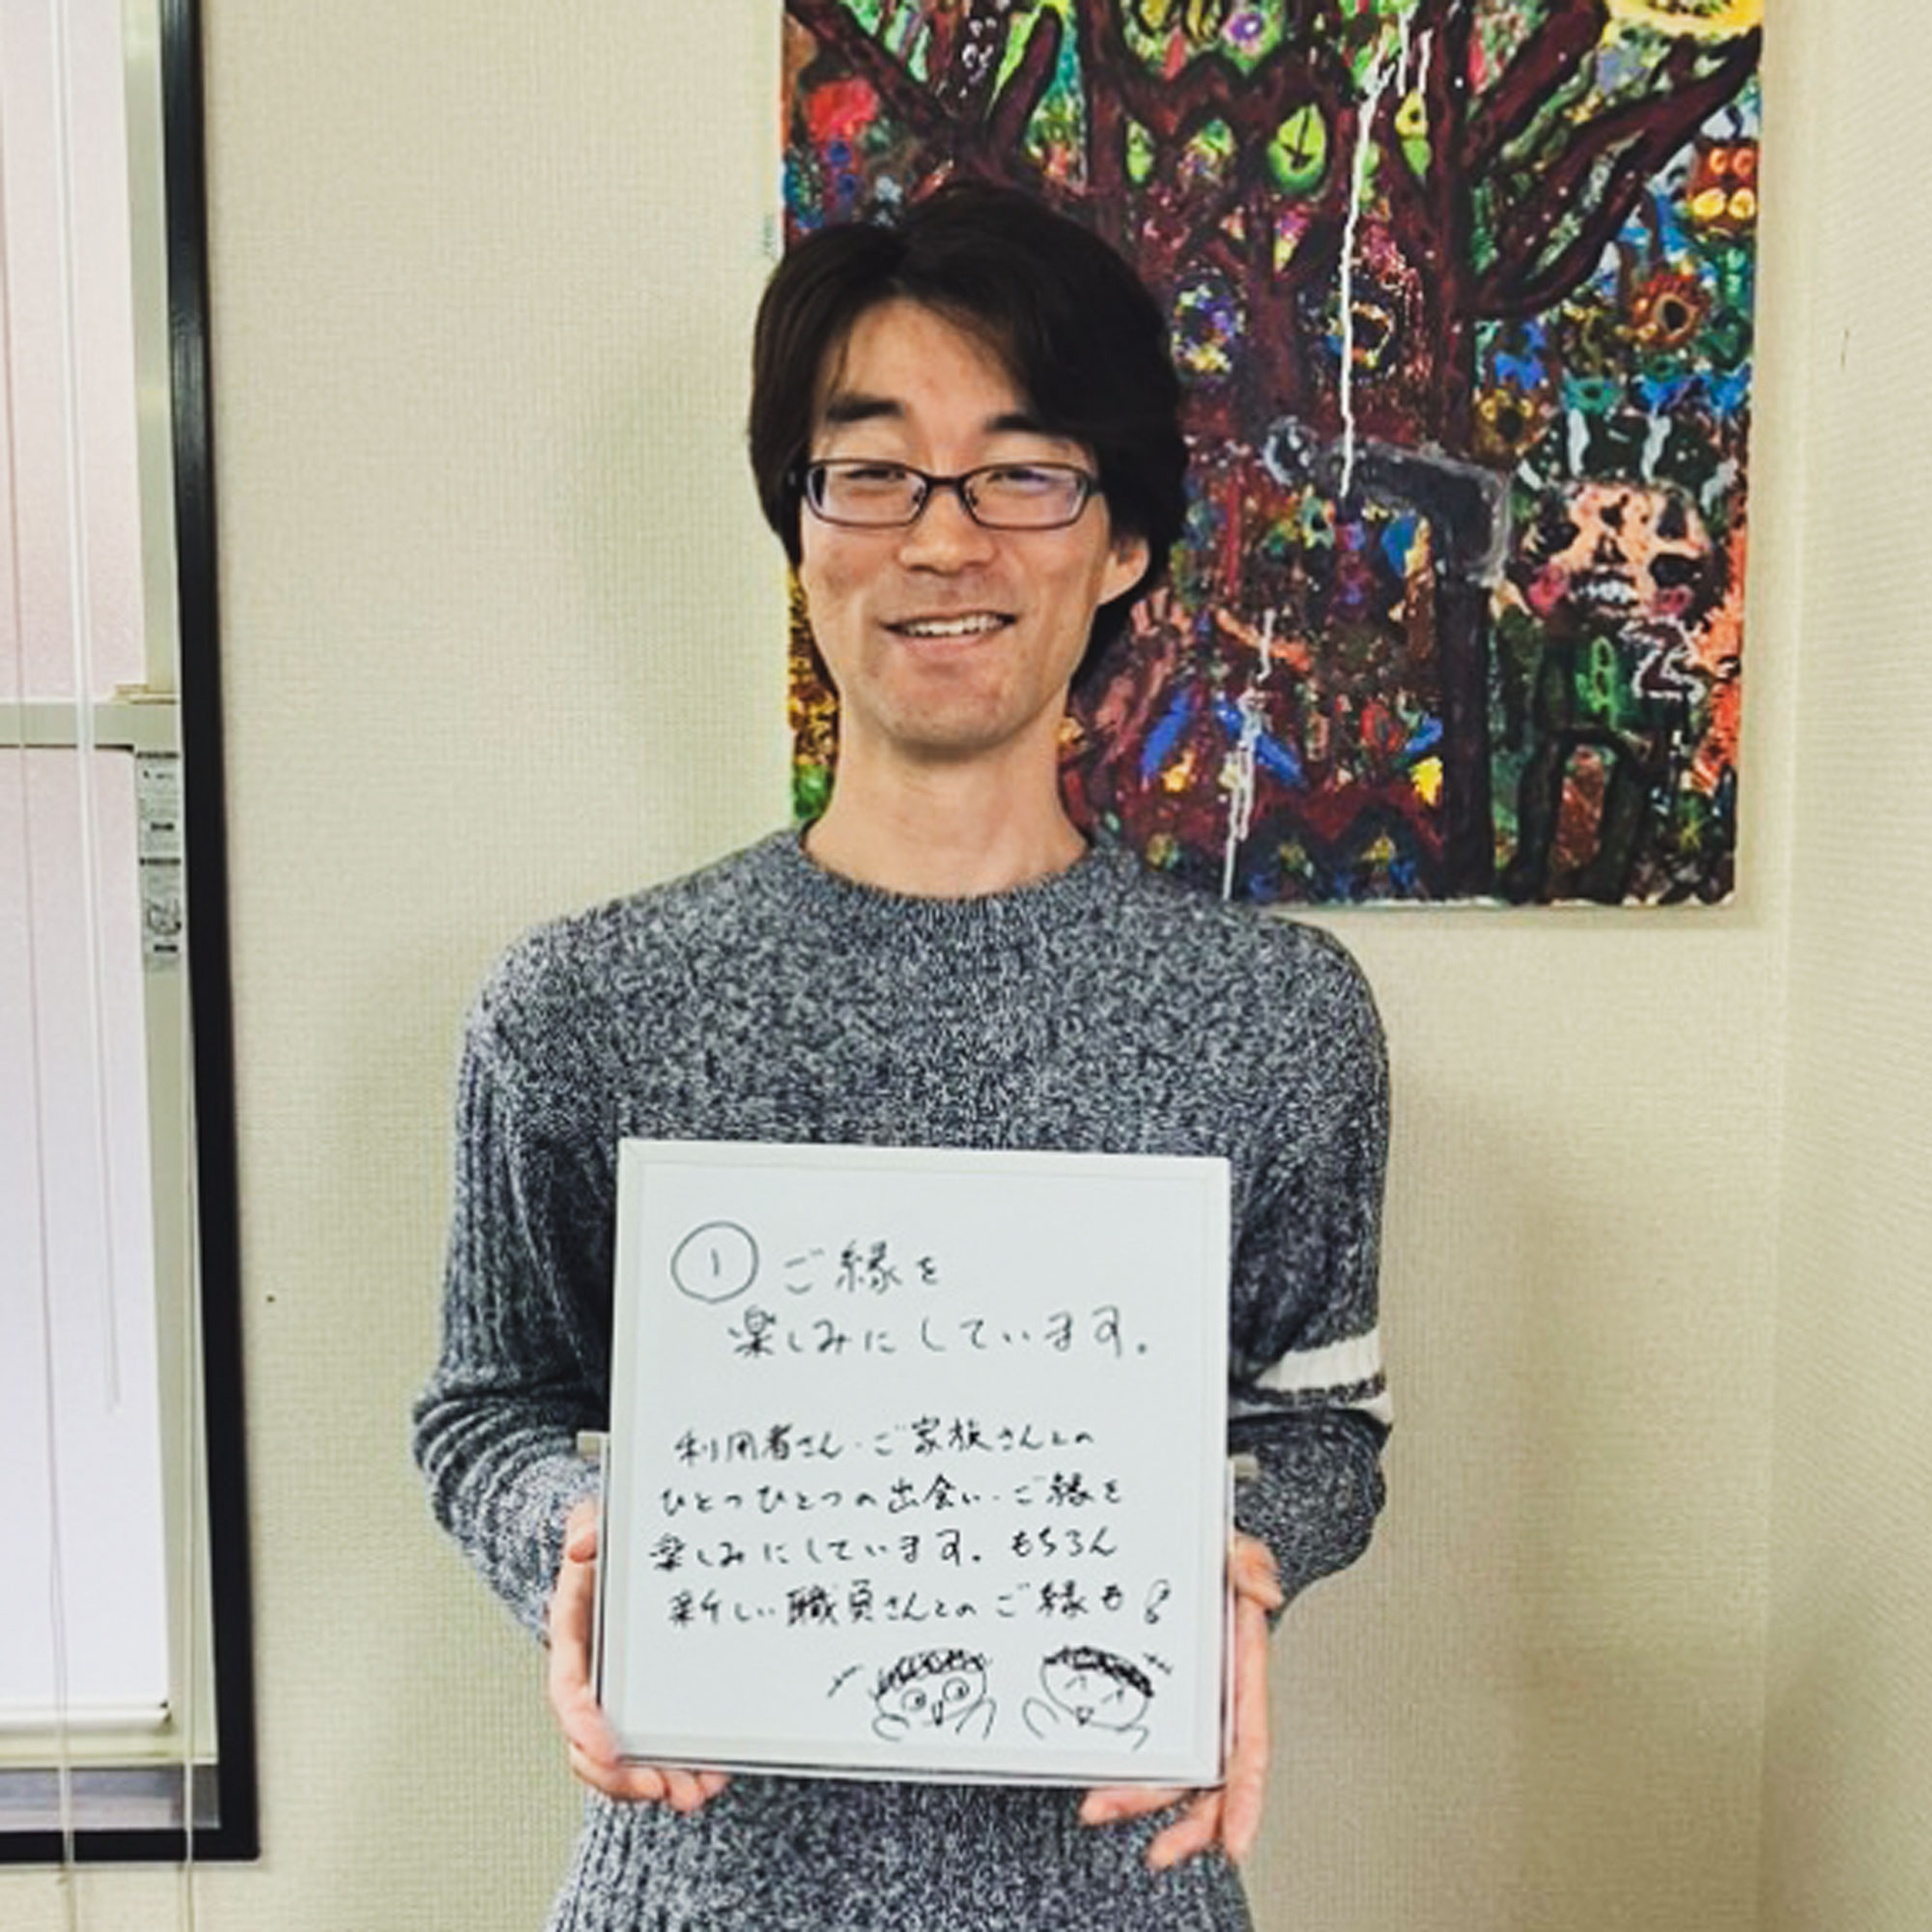 ① ご縁を
楽しみにしています。
利用者さん・ご家族さんとの
ひとつひとつの出会い・ご縁を
楽しみにしています。もちろん
新しい職員さんとのご縁も!